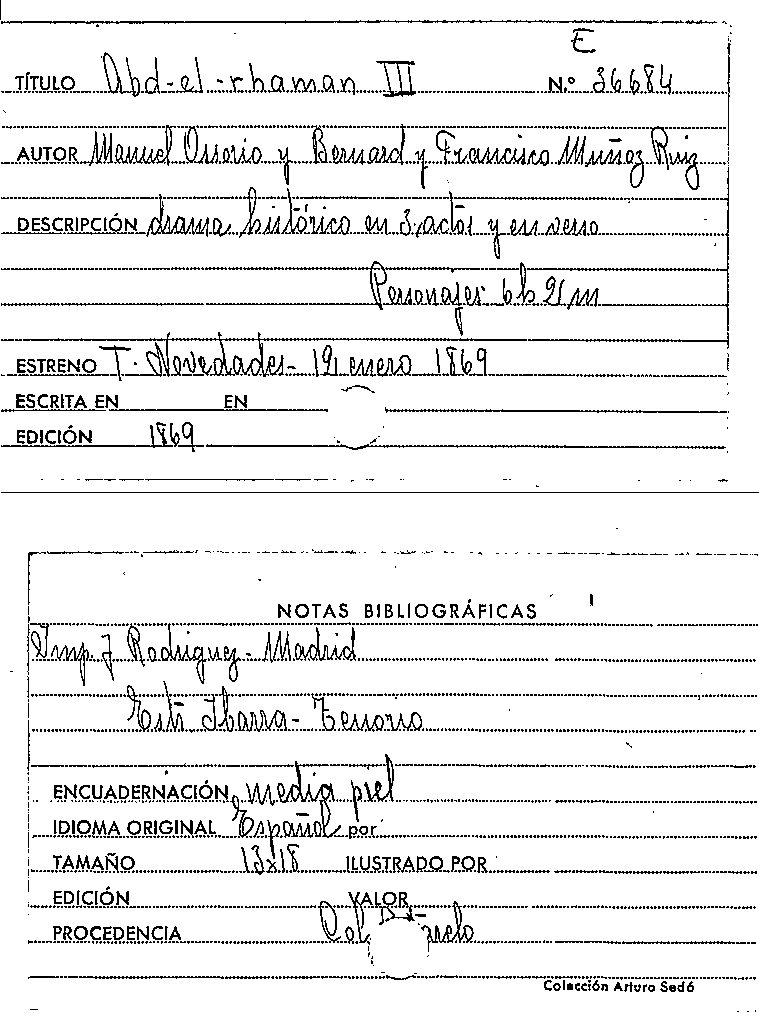 E
TÍTULO Abd-el-rhaman III N.º 36684
AUTOR Manuel Ossorio y Bernard y Francisco Muñoz Ruiz
DESCRIPCIÓN drama histórico en 3 actos y en verso
Personajes 6 h 21 m
ESTRENO T. Novedades - 12 enero 1869
ESCRITA EN EN
EDICIÓN 1869
NOTAS BIBLIOGRÁFICAS
Imp. J Rodriguez - Madrid
Estr Ibarra - Tenorio
ENCUADERNACIÓN media piel
IDIOMA ORIGINAL Español por
TAMAÑO 13x18 ILUSTRADO POR
EDICIÓN VALOR
PROCEDENCIA Col
Colección Arturo Sedó